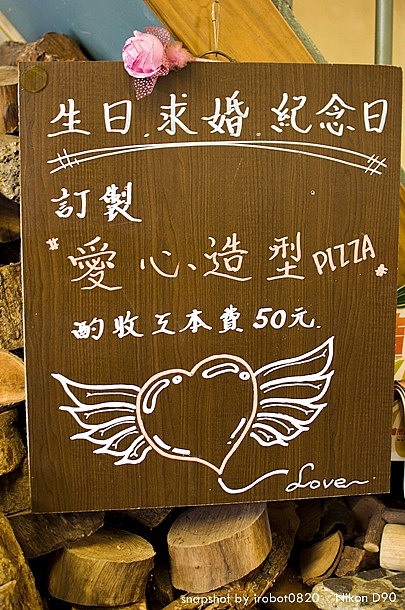 生日.求婚.紀念日
訂製
*愛心、造型PIZZA*
酌收工本費50元.
Love~
snapshot by jrobot0820 - Nikon D90